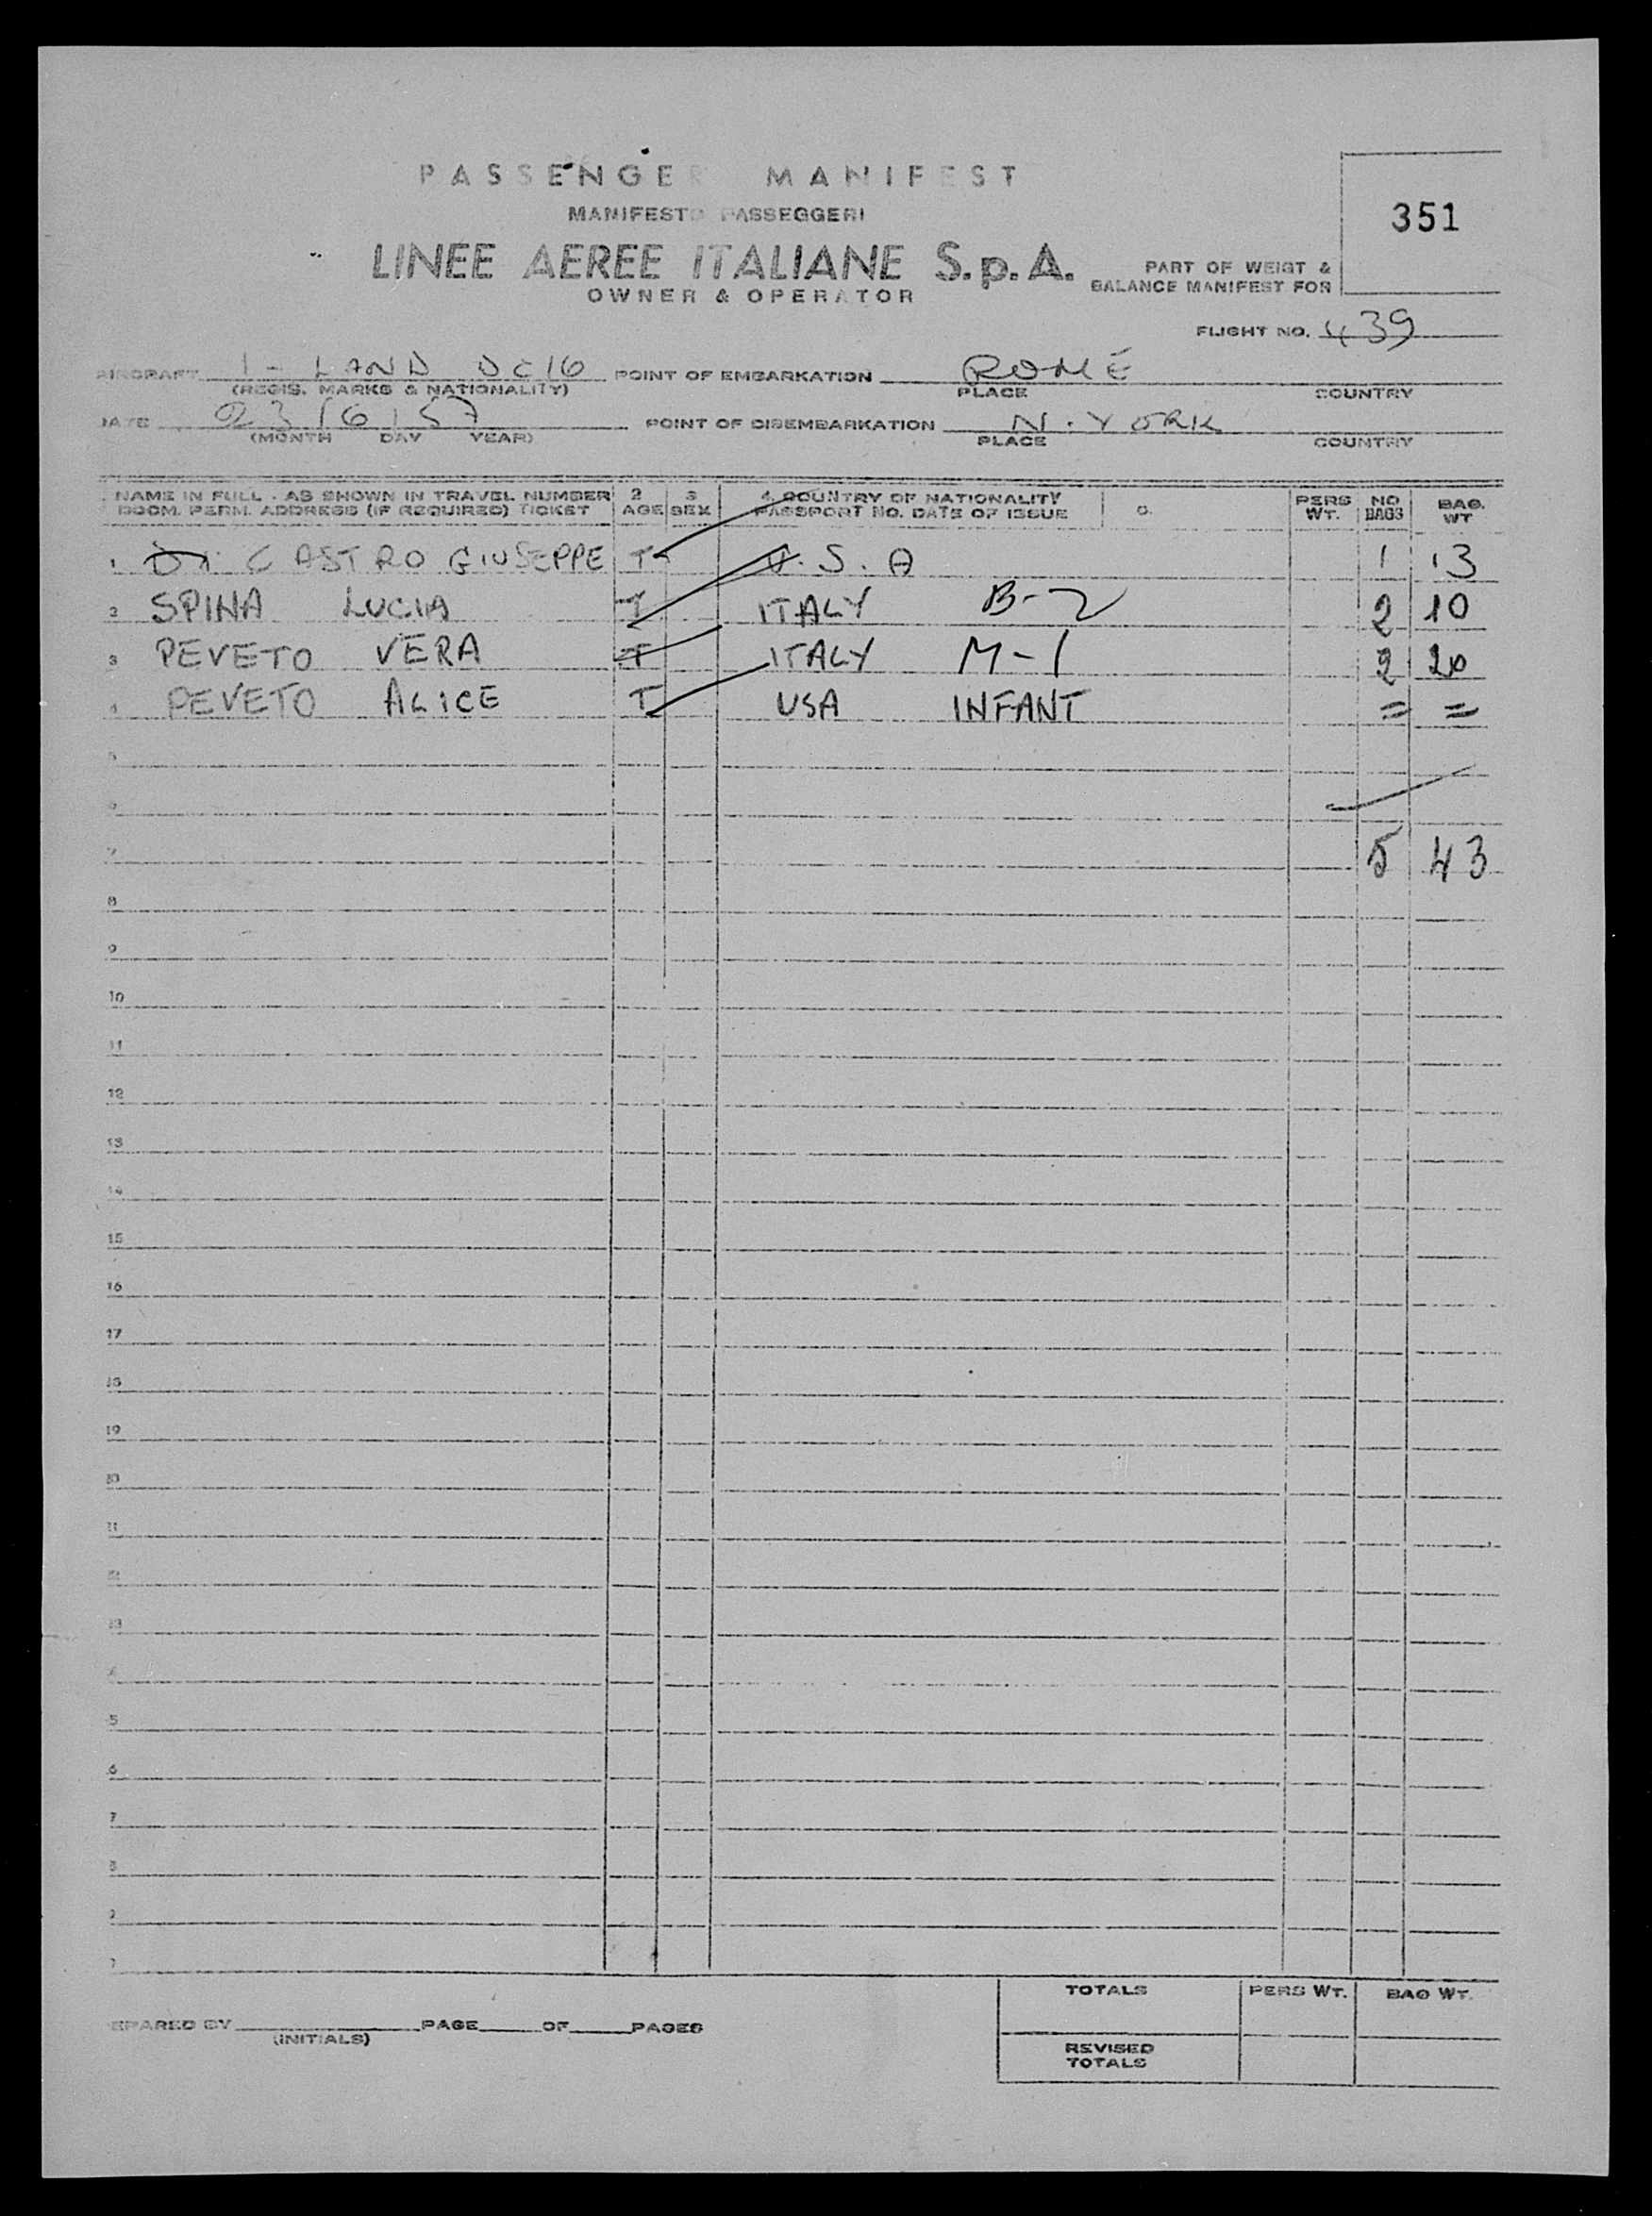 PASSENGER MANIFEST
MANIFESTO PASSEGGERI
351
LINEE AEREE ITALIANE S.p.A.
OWNER & OPERATOR
PART OF WEIGT &
BALANCE MANIFEST FOR
FLIGHT NO. 439
AIRCRAFT I - LAND DC16 POINT OF EMBARKATION ROME
(REGIS. MARKS & NATIONALITY) PLACE COUNTRY
DATE 23/6/57 POINT OF DISEMBARKATION N. YORK
(MONTH DAY YEAR) PLACE COUNTRY
NAME IN FULL - AS SHOWN IN TRAVEL NUMBER 2 3 4. COUNTRY OF NATIONALITY PERS NO BAG.
DOCM. PERM. ADDRESS (IF REQUIRED) TICKET AGE SEX PASSPORT NO. DATE OF ISSUE WT. BAGS WT
1 Di CASTRO GIUSEPPE T U.S.A 1 13
2 SPINA LUCIA T ITALY B-2 2 10
3 PEVETO VERA T ITALY M-1 2 20
4 PEVETO ALICE T USA INFANT = =
5
6
7 5 43
8
9
10
11
12
13
14
15
16
17
18
19
20
21
5
6
7
8
TOTALS PERS WT. BAG WT.
PREPARED BY PAGE OF PAGES
(INITIALS)
REVISED
TOTALS